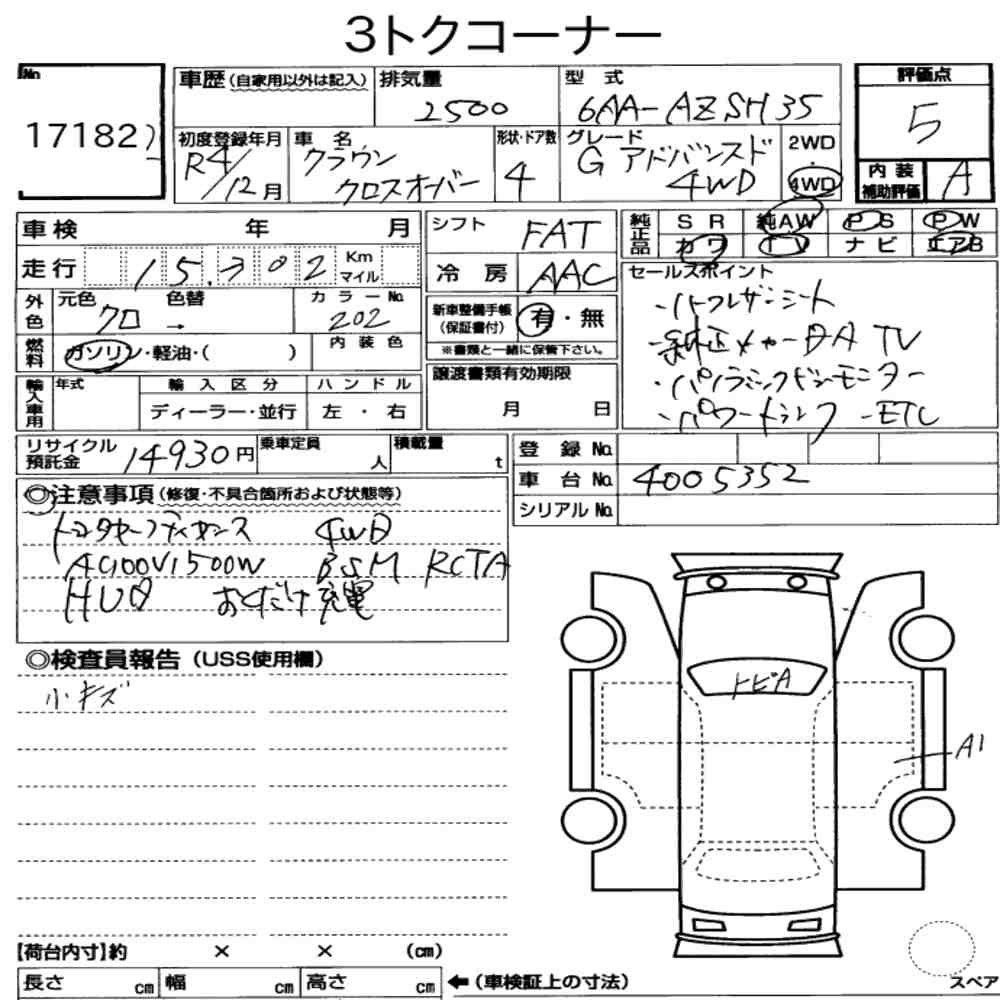 3トクコーナー
No
17182
車歴(自家用以外は記入)
排気量
2500
型式
6AA-AZSH35
評価点
5
初度登録年月
R4/12月
車名
クラウン
クロスオーバー
形状・ドア数
4
グレード
G アドバンスド
4WD
2WD
・
4WD
内装
補助評価
A
車検 年 月
シフト
FAT
純正品
SR 純AW PS PW
カワ TV ナビ エアB
走行 15,302 Km マイル
冷房
AAC
セールスポイント
・ハーフレザーシート
・純正メーカーDA TV
・パノラミックビューモニター
・パワートランク -ETC
外色
元色 クロ → 色替
カラーNo.
202
新車整備手帳
(保証書付)
有・無
※書類と一緒に保管下さい。
燃料
ガソリン・軽油・( )
内装色
譲渡書類有効期限
月 日
輸入車用
年式
輸入区分
ディーラー・並行
ハンドル
左・右
リサイクル
預託金
14930円
乗車定員
人
積載量
t
登録No.
車台No.
4005352
シリアルNo.
◎注意事項(修復・不具合箇所および状態等)
トヨタセーフティセンス 4WD
AC100V1500W BSM RCTA
HUD おくだけ充電
◎検査員報告(USS使用欄)
小キズ
トビA
A1
【荷台内寸】約 × × (cm)
長さ cm 幅 cm 高さ cm
←(車検証上の寸法)
スペア